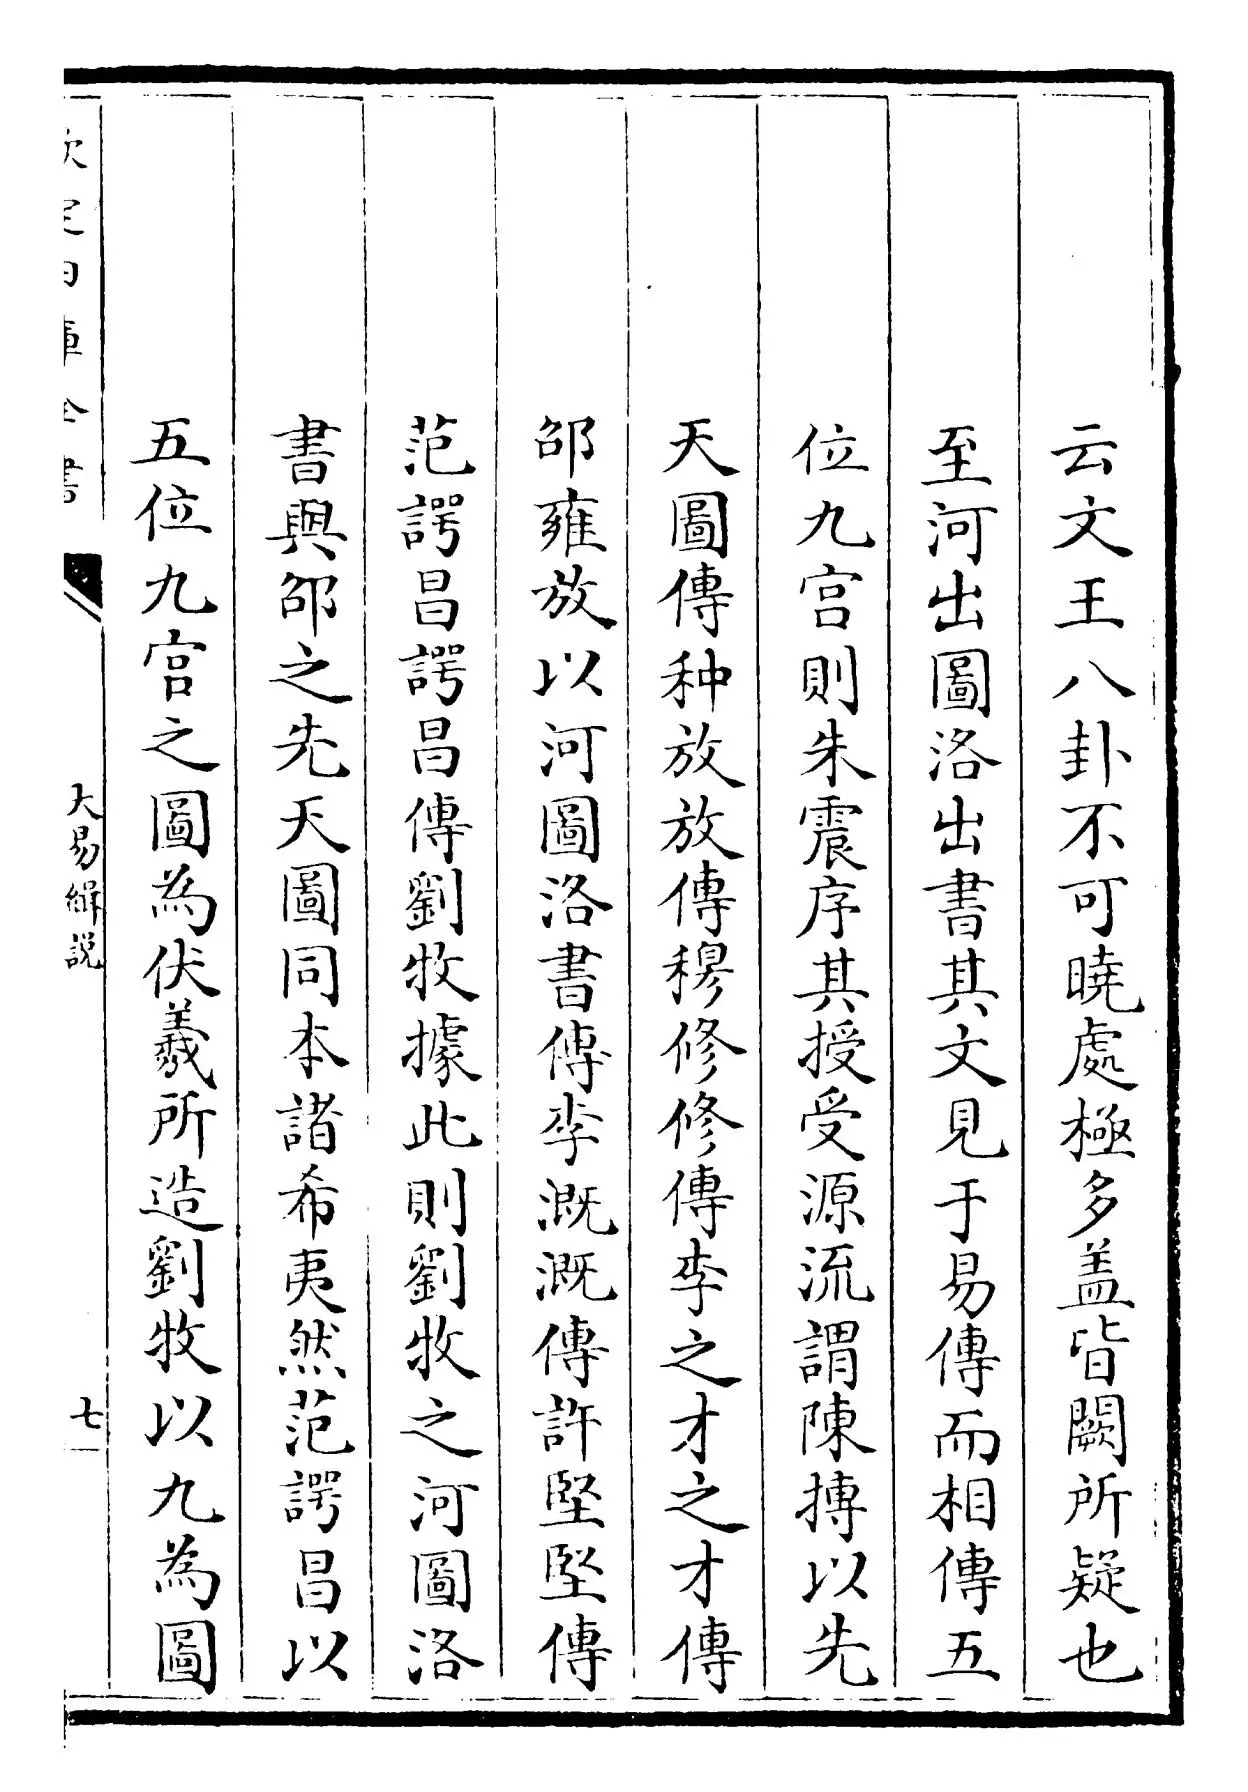 云文王八卦不可曉處極多盖皆闕所疑也
至河出圖洛出書其文見于易傳而相傳五
位九宫則朱震序其授受源流謂陳摶以先
天圖傳种放放傳穆修修傳李之才之才傳
邵雍放以河圖洛書傳李溉溉傳許堅堅傳
范諤昌諤昌傳劉牧據此則劉牧之河圖洛
書與邵之先天圖同本諸希夷然范諤昌以
五位九宫之圖為伏羲所造劉牧以九為圖
欽定四庫全書
大易緝説
七